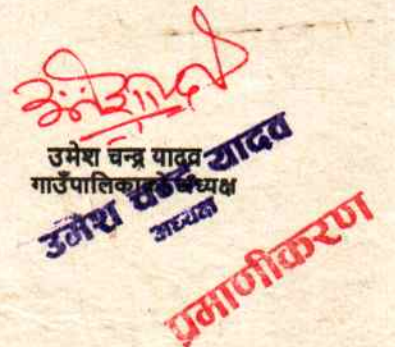 उमेश चन्द्र यादव
गाउँपालिका अध्यक्ष
उमेश चन्द्र यादव
अध्यक्ष
प्रमाणीकरण